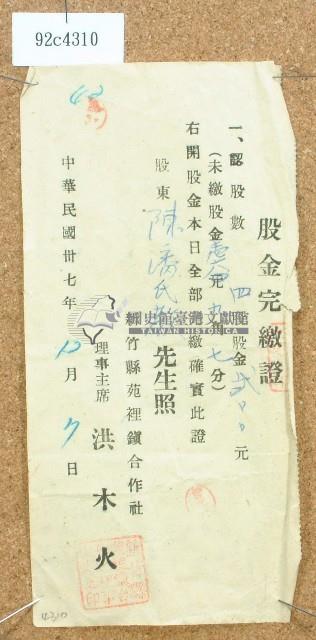 92c4310
股金完繳證
一、認股數 四 股金 弍〇〇 元
(未繳股金 九角七分)
右開股金本日全部繳確實此證
股東 陳潘氏 先生照
新竹縣苑裡鎭合作社
理事主席 洪木火
中華民國卅七年 12 月 7 日
42
國史館臺灣文獻館
TAIWAN HISTORICA
4310